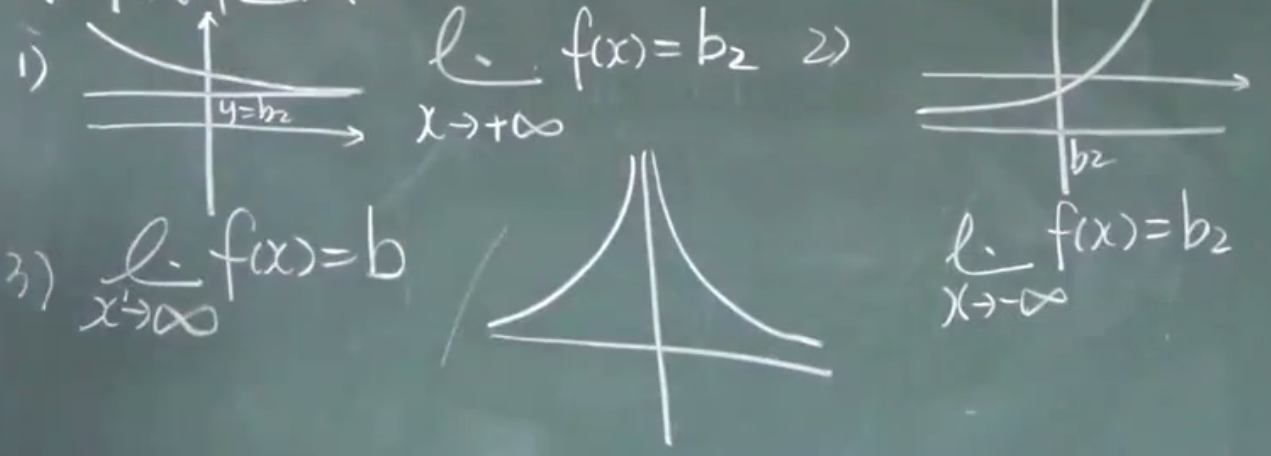 1)
y=b₂
lim f(x)=b₂
x→+∞
2)
b₂
lim f(x)=b₂
x→-∞
3)
lim f(x)=b
x→∞